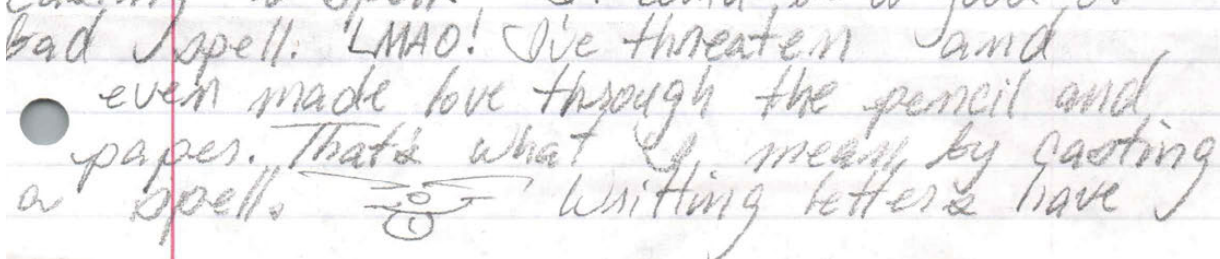 bad spell. LMAO! I've threaten and
even made love through the pencil and
paper. That's what I mean by casting
a spell. Writting letters have